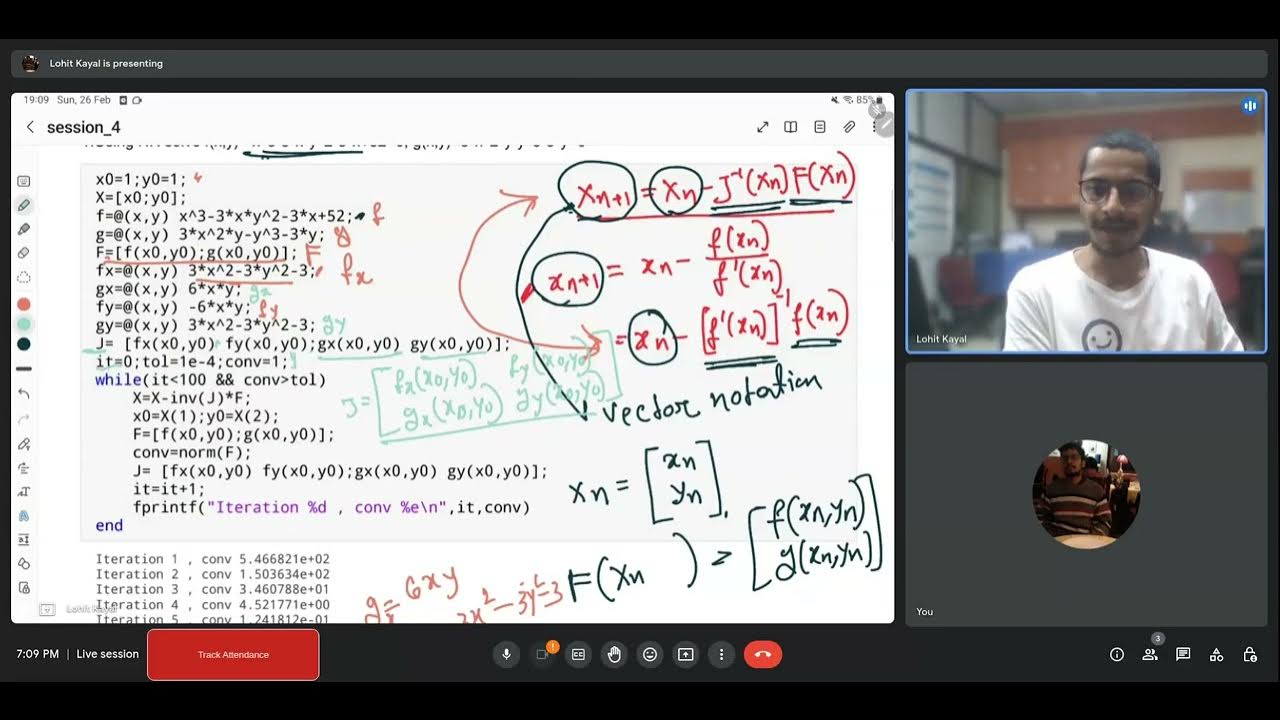 Lohit Kayal is presenting
19:09 Sun, 26 Feb
85%
session_4
x0=1;y0=1;
X=[x0;y0];
f=@(x,y) x^3-3*x*y^2-3*x+52; f
g=@(x,y) 3*x^2*y-y^3-3*y; g
F=[f(x0,y0);g(x0,y0)]; F
fx=@(x,y) 3*x^2-3*y^2-3; fx
gx=@(x,y) 6*x*y; gx
fy=@(x,y) -6*x*y; fy
gy=@(x,y) 3*x^2-3*y^2-3; gy
J= [fx(x0,y0) fy(x0,y0);gx(x0,y0) gy(x0,y0)];
it=0;tol=1e-4;conv=1;
while(it<100 && conv>tol)
X=X-inv(J)*F;
x0=X(1);y0=X(2);
F=[f(x0,y0);g(x0,y0)];
conv=norm(F);
J= [fx(x0,y0) fy(x0,y0);gx(x0,y0) gy(x0,y0)];
it=it+1;
fprintf("Iteration %d , conv %e\n",it,conv)
end
Iteration 1 , conv 5.466821e+02
Iteration 2 , conv 1.503634e+02
Iteration 3 , conv 3.460788e+01
Iteration 4 , conv 4.521771e+00
Iteration 5 , conv 1.241812e-01
Xn+1 = Xn - J⁻¹(Xn) F(Xn)
xn+1 = xn - f(xn)
f'(xn)
= xn - [f'(xn)]⁻¹ f(xn)
J = [fx(x0,y0) fy(x0,y0)
gx(x0,y0) gy(x0,y0)]
vector notation
Xn = [xn
yn].
F(Xn ) = [f(xn,yn)
g(xn,yn)]
gx= 6xy
3x²-3y²-3
Lohit Kayal
Lohit Kayal
You
7:09 PM | Live session
Track Attendance
3